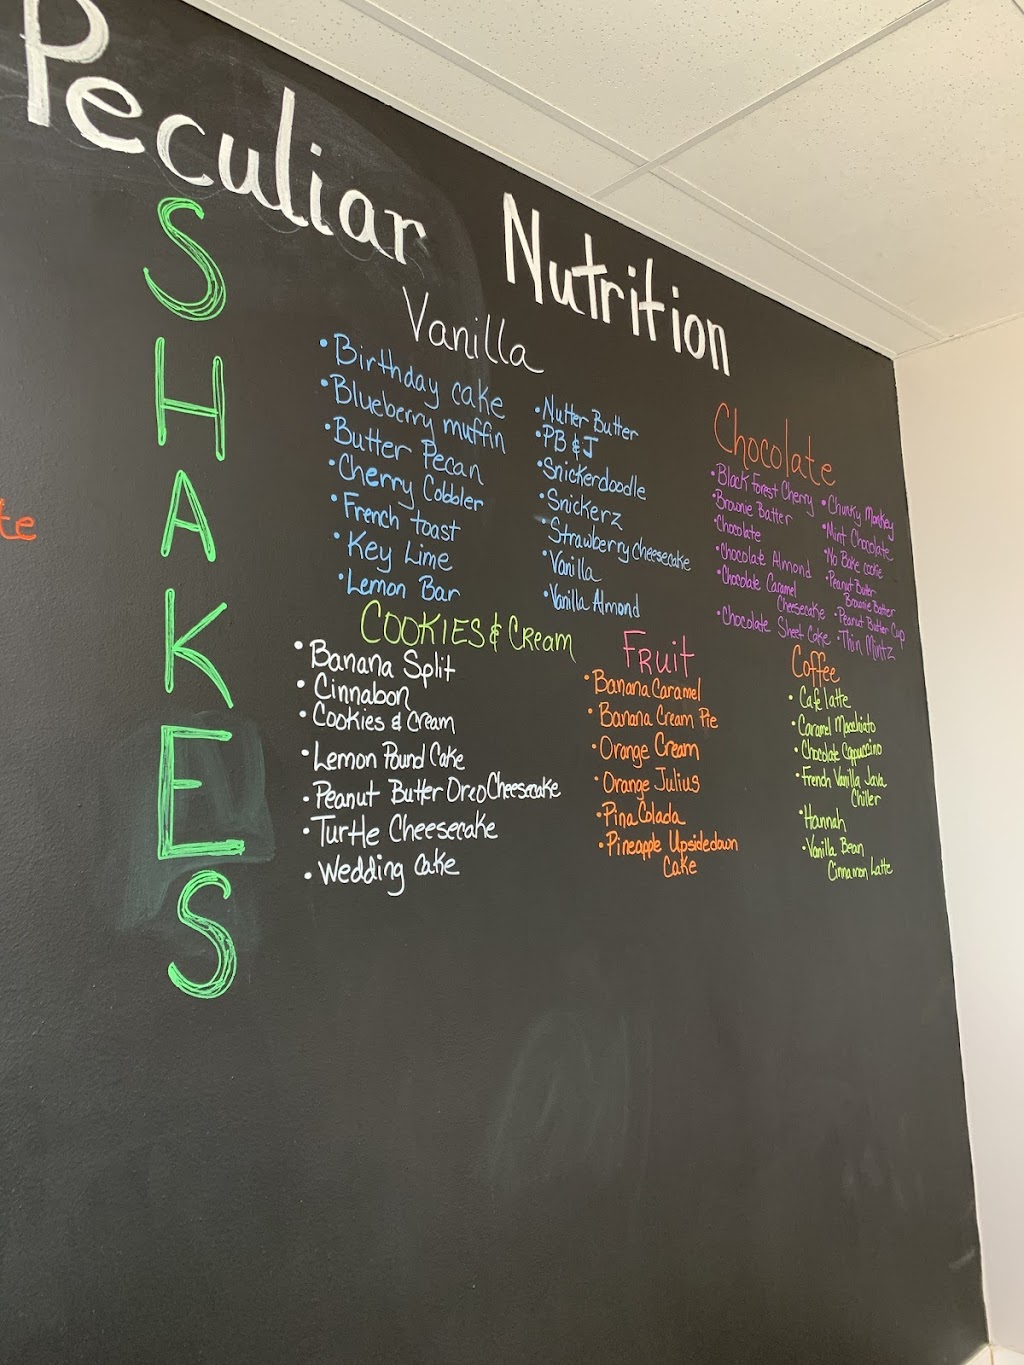 Peculiar Nutrition
SHAKES
te
Vanilla
• Birthday cake
• Blueberry muffin
• Butter Pecan
• Cherry Cobbler
• French toast
• Key Lime
• Lemon Bar
• Nutter Butter
• PB & J
• Snickerdoodle
• Snickerz
• Strawberry cheesecake
• Vanilla
• Vanilla Almond
Chocolate
• Black Forest Cherry
• Brownie Batter
• Chocolate
• Chocolate Almond
• Chocolate Caramel
Cheesecake
• Chocolate Sheet Cake
• Chunky Monkey
• Mint Chocolate
• No Bake cookie
• Peanut Butter
Brownie Batter
• Peanut Butter Cup
• Thin Mintz
COOKIES & Cream
• Banana Split
• Cinnabon
• Cookies & Cream
• Lemon Pound Cake
• Peanut Butter Oreo Cheesecake
• Turtle Cheesecake
• Wedding Cake
FRuit
• Banana Caramel
• Banana Cream Pie
• Orange Cream
• Orange Julius
• Pina Colada
• Pineapple Upsidedown
Cake
Coffee
• Cafe latte
• Caramel Macchiato
• Chocolate Cappuccino
• French Vanilla Java
Chiller
• Hannah
• Vanilla Bean
Cinnamon Latte